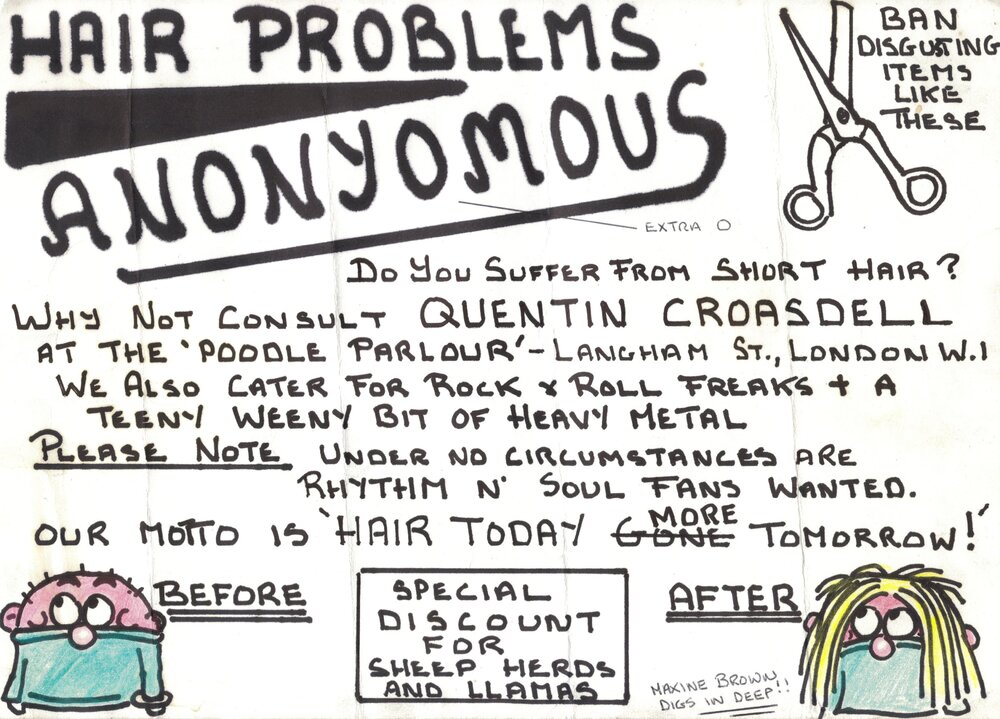 HAIR PROBLEMS
ANONYOMOUS
EXTRA O
BAN
DISGUSTING
ITEMS
LIKE
THESE
DO YOU SUFFER FROM SHORT HAIR?
WHY NOT CONSULT QUENTIN CROASDELL
AT THE 'POODLE PARLOUR' - LANGHAM ST., LONDON W.1
WE ALSO CATER FOR ROCK & ROLL FREAKS + A
TEENY WEENY BIT OF HEAVY METAL
PLEASE NOTE UNDER NO CIRCUMSTANCES ARE
RHYTHM N' SOUL FANS WANTED.
OUR MOTTO IS 'HAIR TODAY GONE MORE TOMORROW!'
BEFORE
SPECIAL
DISCOUNT
FOR
SHEEP HERDS
AND LLAMAS
AFTER
MAXINE BROWN
DIGS IN DEEP!!